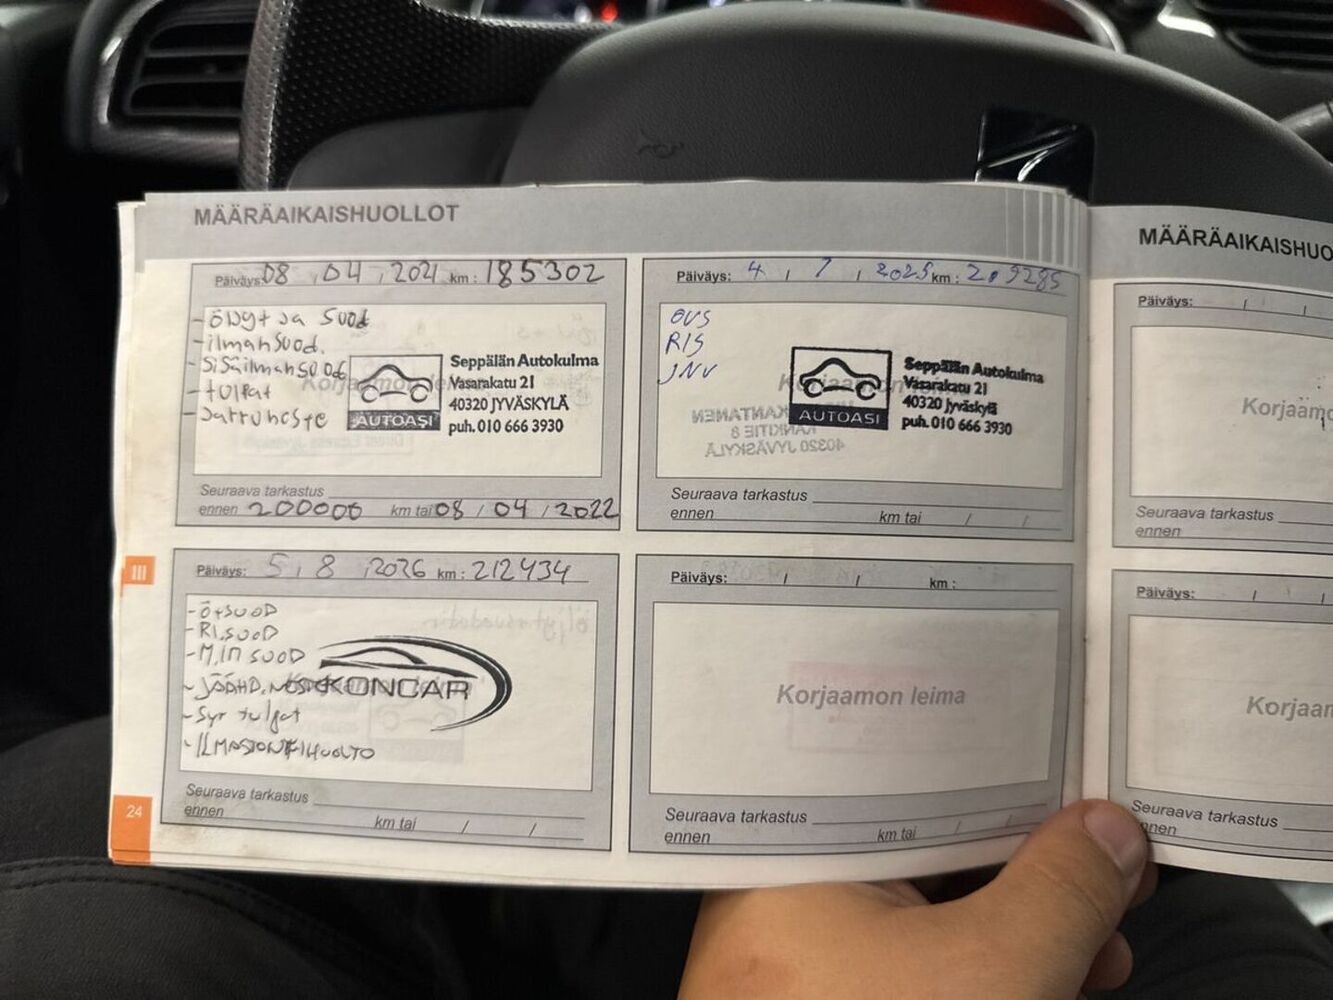 MÄÄRÄAIKAISHUOLLOT
Päiväys: 08 / 04 / 2021 km: 185302
- Öljyt ja suod
- ilmansuod.
- Sisäilmansuod
- tulpat
- Jarruneste
Korjaamon leima
AUTOASI
Seppälän Autokulma
Vasarakatu 21
40320 JYVÄSKYLÄ
puh. 010 666 3930
Seuraava tarkastus
ennen 200000 km tai 08 / 04 / 2022
Päiväys: 4 / 7 / 2023 km: 209285
ÖVS
RIS
JNV
AUTOASI
Seppälän Autokulma
Vasarakatu 21
40320 Jyväskylä
puh. 010 666 3930
Seuraava tarkastus
ennen km tai / /
III
Päiväys: 5 / 8 / 2026 km: 212434
- Ö+SUOD
- RI.SUOD
- M.IN SUOD
- JÄÄHD.
- Syt tulpat
- ILMASTOINTIHUOLTO
KONCAR
Seuraava tarkastus
ennen km tai / /
Päiväys: / / km:
Korjaamon leima
Seuraava tarkastus
ennen km tai / /
24
MÄÄRÄAIKAISHUO
Päiväys: / /
Korjaamo
Seuraava tarkastus
ennen
Päiväys: / /
Korjaam
Seuraava tarkastus
ennen